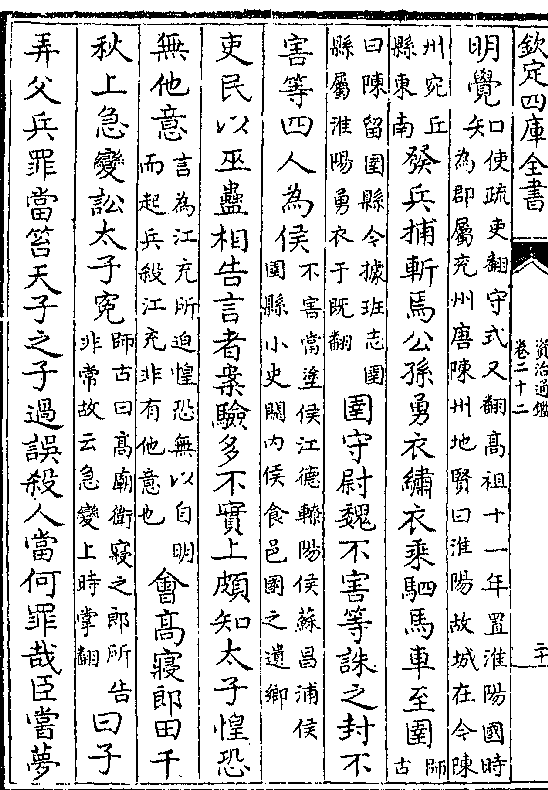 欽定四庫全書
資治通鑑
卷二十二
二十
明覺知
口使疏吏翻守式又翻高祖十一年置淮陽國時
為郡屬兖州唐陳州地賢曰淮陽故城在今陳
州宛丘
縣東南
發兵捕斬馬公孫勇衣繡衣乗駟馬車至圉
師
古
曰陳留圉縣令據班志圉
縣屬淮陽勇衣于既翻
圉守尉魏不害等誅之封不
害等四人為侯
不害當塗侯江德轑陽侯蘇昌浦侯
圉縣小史關内侯食邑圉之遺鄉
吏民以巫蠱相告言者案驗多不實上頗知太子惶恐
無他意
言為江充所迫惶恐無以自明
而起兵殺江充非有他意也
會高寢郎田千
秋上急變訟太子寃
師古曰髙廟衛寢之郎所告
非常故云急變上時掌翻
曰子
弄父兵罪當笞天子之子過誤殺人當何罪哉臣嘗夢